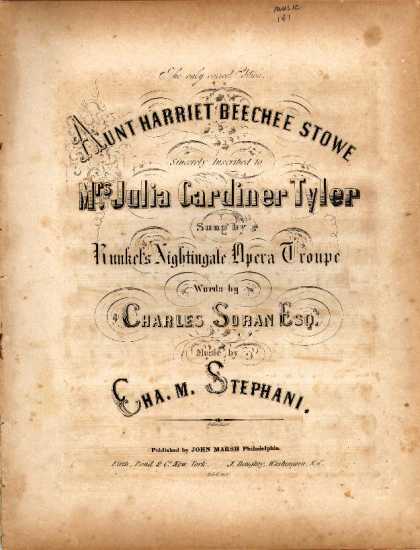 MUSIC
161
The only correct Edition.
AUNT HARRIET BEECHEE STOWE
Sincerely Inscribed to
Mrs Julia Gardiner Tyler
Sung by
Kunkel's Nightingale Opera Troupe
Words by
CHARLES SORAN ESQ.
Music by
CHA. M. STEPHANI.
Published by JOHN MARSH Philadelphia.
Firth, Pond & Co. New York.